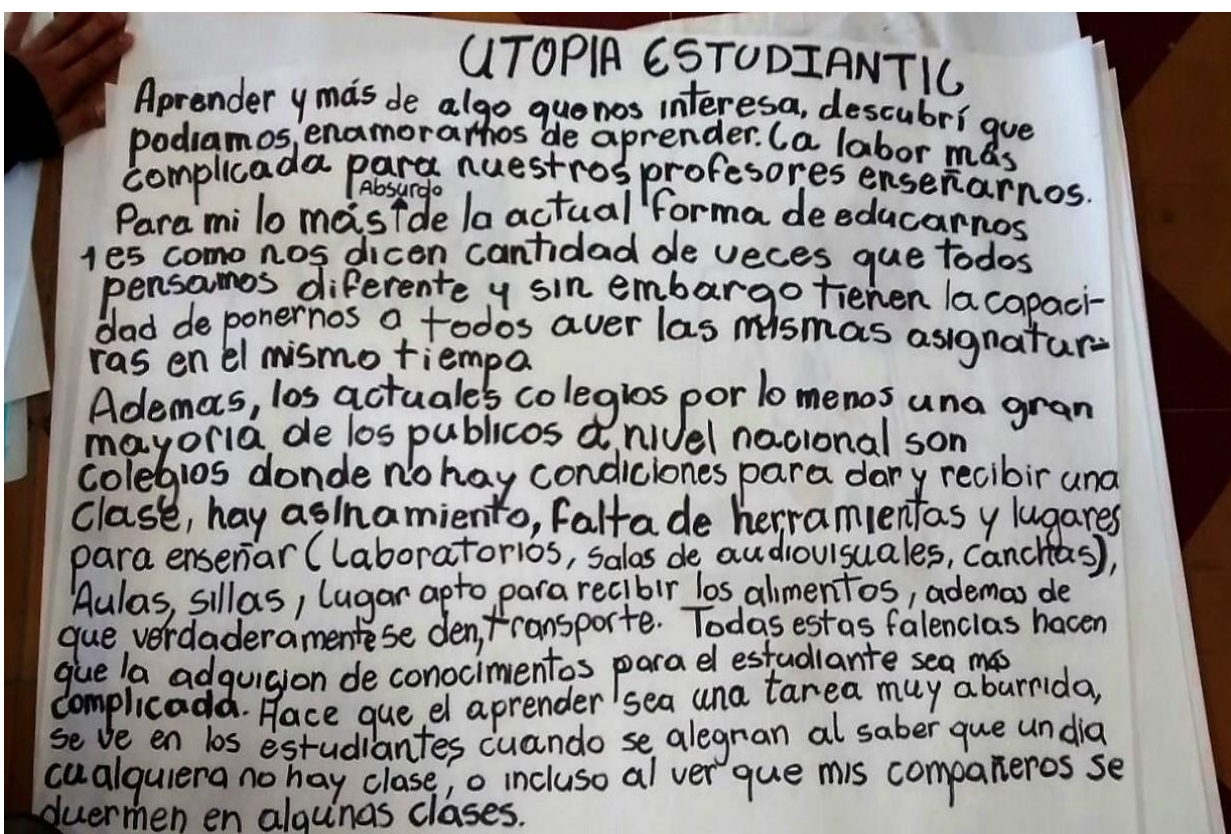 UTOPIA ESTUDIANTIL
Aprender y más de algo que nos interesa, descubrí que
podiamos, enamorarnos de aprender. La labor más
complicada para nuestros profesores enseñarnos.
Absurdo
Para mi lo más de la actual forma de educarnos
es como nos dicen cantidad de veces que todos
pensamos diferente y sin embargo tienen la capaci-
dad de ponernos a todos aver las mismas asignatur-
ras en el mismo tiempo
Ademas, los actuales colegios por lo menos una gran
mayoria de los publicos a nivel nacional son
colegios donde no hay condiciones para dar y recibir una
clase, hay asinamiento, falta de herramientas y lugares
para enseñar (Laboratorios, salas de audiovisuales, canchas),
Aulas, sillas, lugar apto para recibir los alimentos, ademas de
que verdaderamente se den, transporte. Todas estas falencias hacen
que la adquicion de conocimientos para el estudiante sea más
complicada. Hace que el aprender sea una tarea muy aburrida,
se ve en los estudiantes cuando se alegran al saber que un dia
cualquiera no hay clase, o incluso al ver que mis compañeros se
duermen en algunas clases.